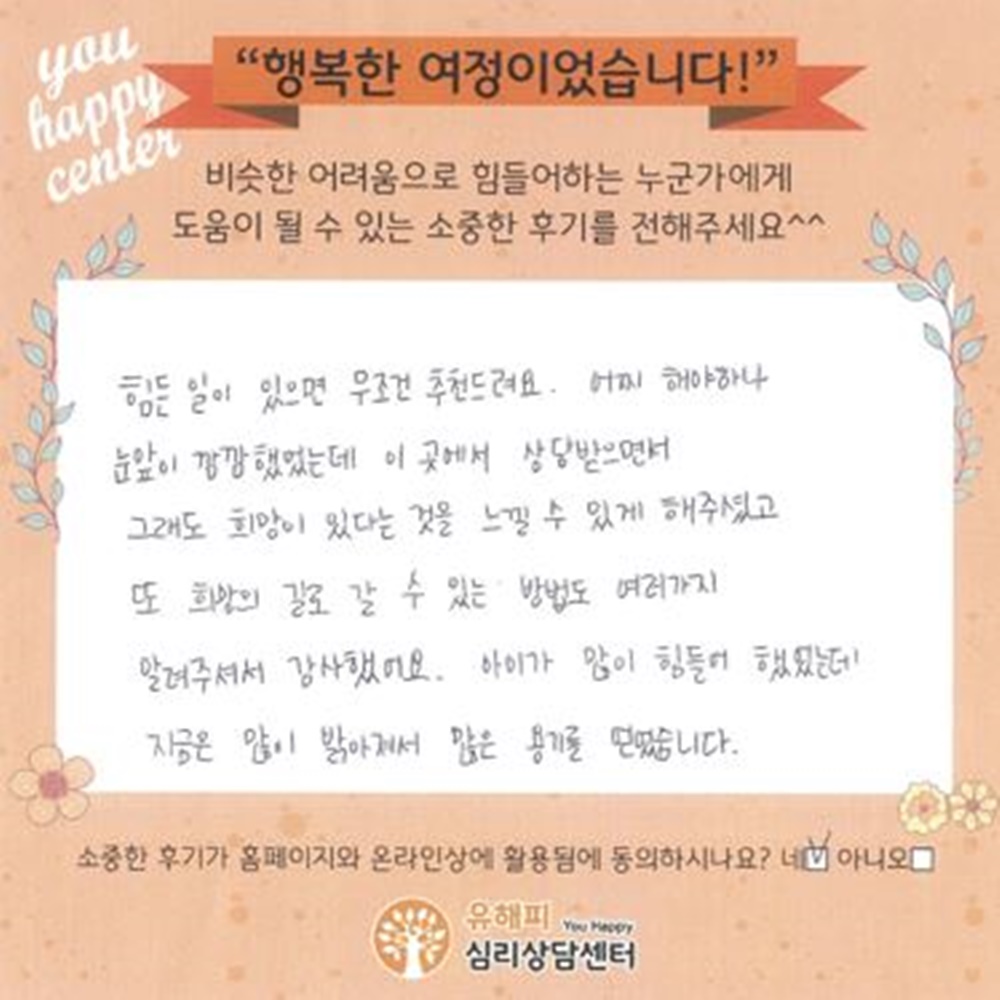 you
happy
center
“행복한 여정이었습니다!”
비슷한 어려움으로 힘들어하는 누군가에게
도움이 될 수 있는 소중한 후기를 전해주세요^^
힘든 일이 있으면 무조건 추천드려요. 어찌 해야하나
눈앞이 깜깜했었는데 이 곳에서 상담받으면서
그래도 희망이 있다는 것을 느낄 수 있게 해주셨고
또 희망의 길로 갈 수 있는 방법도 여러가지
알려주셔서 감사했어요. 아이가 많이 힘들어 했었는데
지금은 많이 밝아져서 많은 용기를 얻었습니다.
소중한 후기가 홈페이지와 온라인상에 활용됨에 동의하시나요? 네☑ 아니오☐
유해피 You Happy
심리상담센터